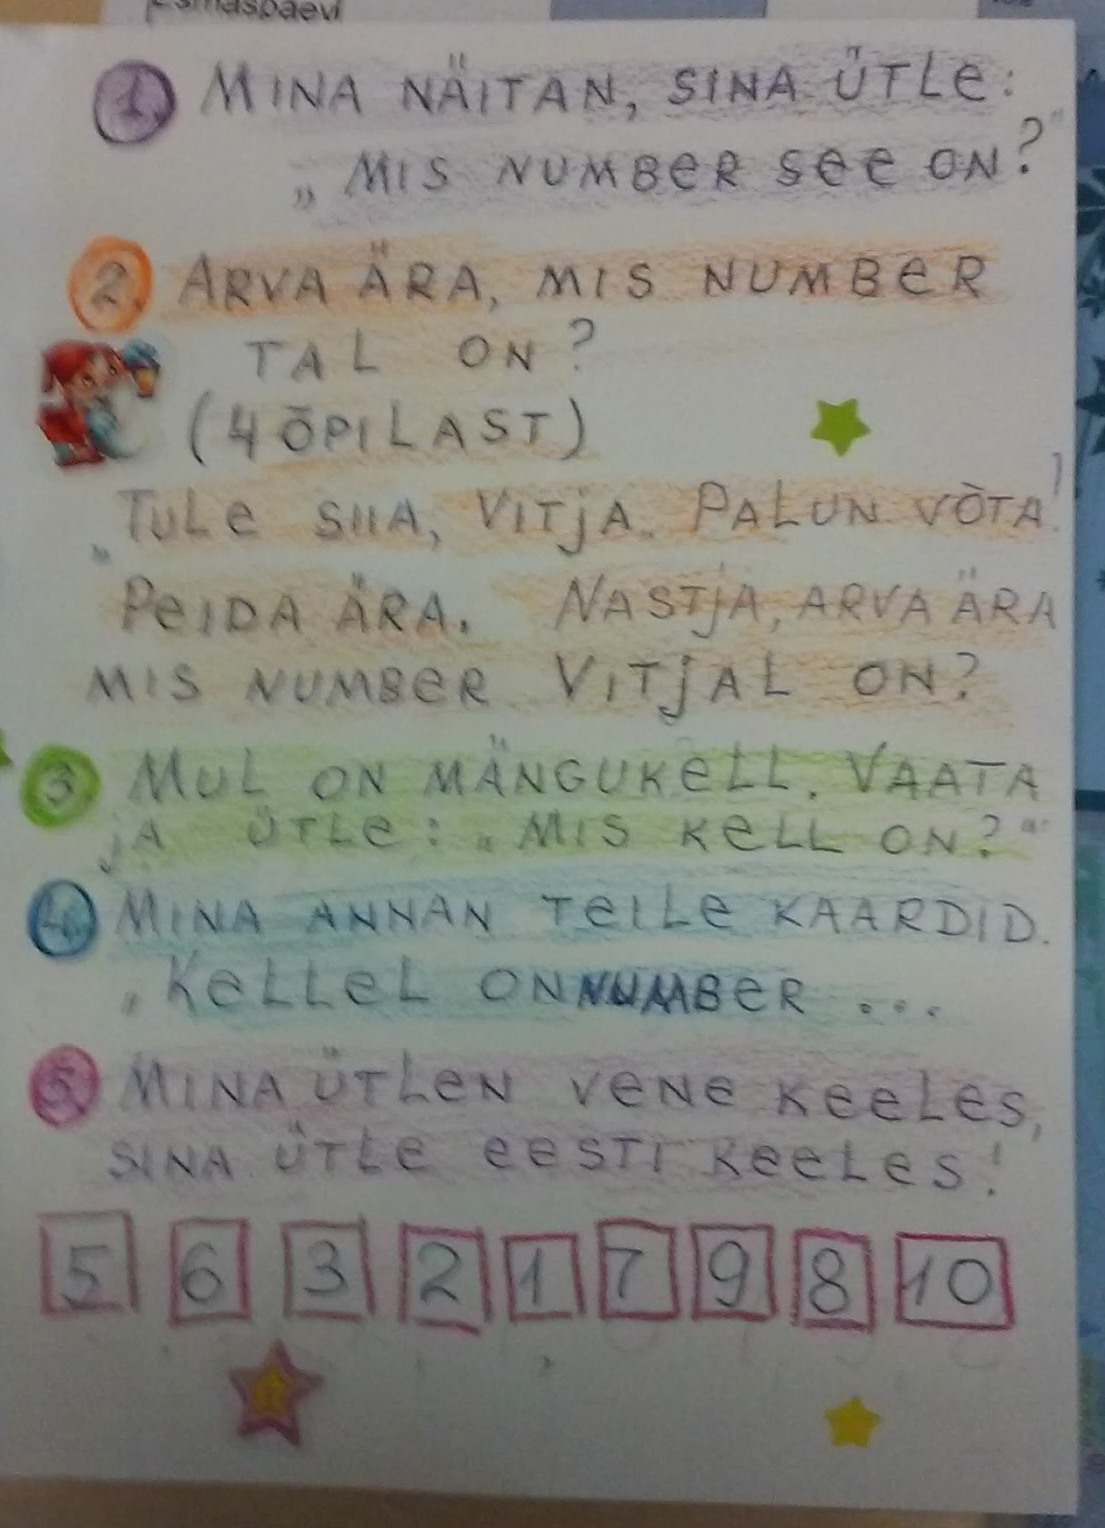 Esmaspäevl
1. MINA NÄITAN, SINA ÜTLE:
„MIS NUMBER SEE ON?"
2. ARVA ÄRA, MIS NUMBER
TAL ON?
(4 ÕPILAST)
„TULE SIIA, VITJA. PALUN VÕTA!
PEIDA ÄRA. NASTJA, ARVA ÄRA
MIS NUMBER VITJAL ON?
3. MUL ON MÄNGUKELL. VAATA
JA ÜTLE: „MIS KELL ON?"
4. MINA ANNAN TEILE KAARDID.
„KELLEL ON NUMBER ...
5. MINA ÜTLEN VENE KEELES,
SINA ÜTLE EESTI KEELES!
5 6 3 2 1 7 9 8 10